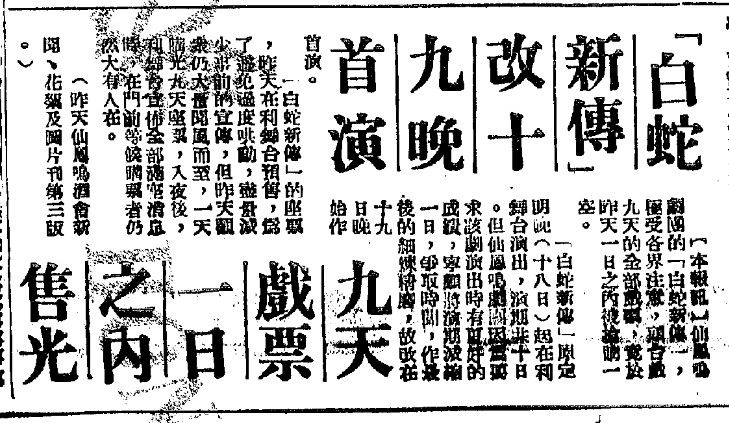 「白蛇
新傳」
改十
九晚
首演
九天
戲票
一日
之內
售光
【本報訊】仙鳳鳴
劇團的「白蛇新傳」，
極受各界注意，頭台戲
九天的全部戲票，竟於
昨天一日之內被搶購一
空。
「白蛇新傳」原定
明晚（十八日）起在利
舞台演出，演期共十日
。但仙鳳鳴劇團因需要
求該劇演出時有更好的
成績，寧願將演期減縮
一日，爭取時間，作最
後的細精磨，故改在
十九
日晚
始作
首演。
「白蛇新傳」的座票
，昨天在利舞台預售，為
了避免過度哄動，盡量減
少事前的宣傳，但昨天觀
衆仍大量聞風而至，一天
購光九天座票，入夜後，
利舞台宣佈全部滿座消息
時，在門前等候購票者仍
然大有人在。
（昨天仙鳳鳴酒會新
聞、花絮及圖片刊第三版
。）